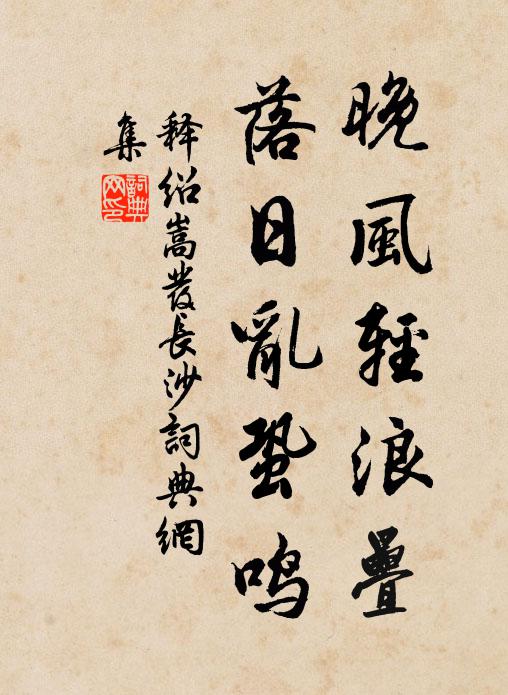 晚風輕浪疊
落日亂蛩鳴
释绍嵩發長沙詞典網
集
詞典网印